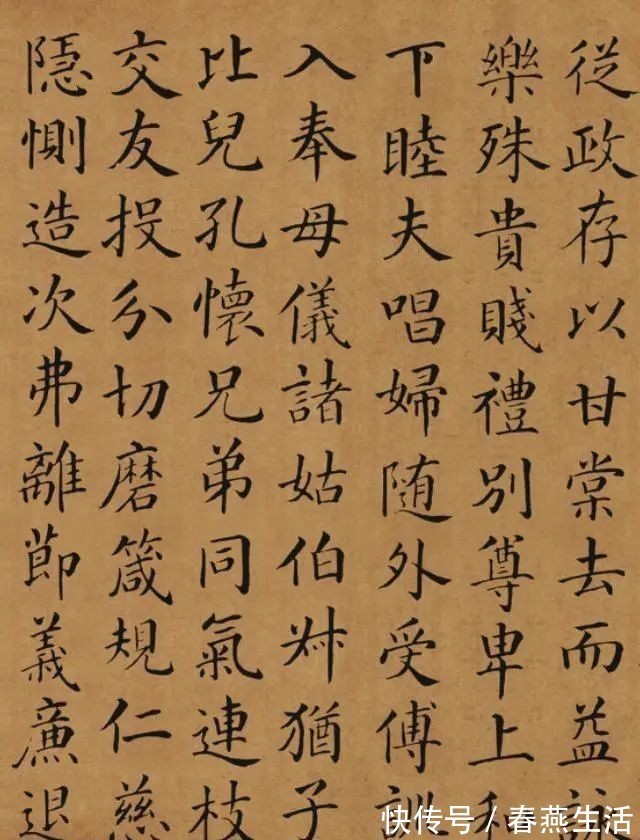 從政存以甘棠去而益
樂殊貴賤禮別尊卑上和
下睦夫唱婦随外受傅訓
入奉母儀諸姑伯叔猶子
比兒孔懷兄弟同氣連枝
交友投分切磨箴規仁慈
隱惻造次弗離節義廉退
快传号/春燕生活